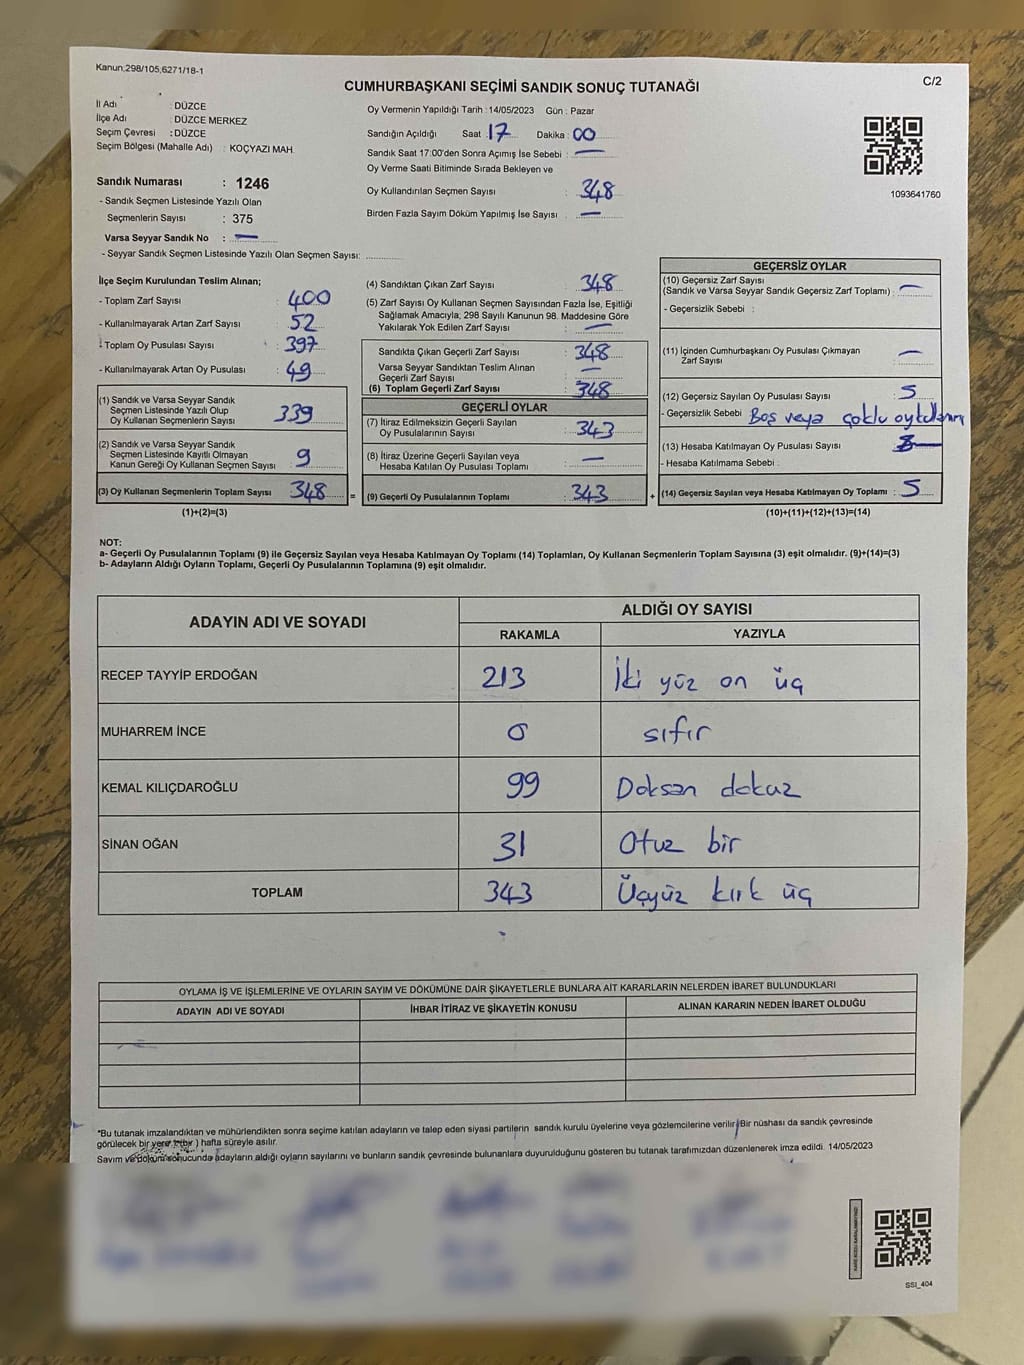 Kanun:298/105,6271/18-1
C/2
CUMHURBAŞKANI SEÇİMİ SANDIK SONUÇ TUTANAĞI
İl Adı : DÜZCE
İlçe Adı : DÜZCE MERKEZ
Seçim Çevresi : DÜZCE
Seçim Bölgesi (Mahalle Adı) : KOÇYAZI MAH.
Sandık Numarası : 1246
- Sandık Seçmen Listesinde Yazılı Olan
Seçmenlerin Sayısı : 375
Varsa Seyyar Sandık No : —
- Seyyar Sandık Seçmen Listesinde Yazılı Olan Seçmen Sayısı:
Oy Vermenin Yapıldığı Tarih : 14/05/2023 Gün : Pazar
Sandığın Açıldığı Saat : 17 Dakika : 00
Sandık Saat 17:00'den Sonra Açımış İse Sebebi : —
Oy Verme Saati Bitiminde Sırada Bekleyen ve
Oy Kullandırılan Seçmen Sayısı : 348
Birden Fazla Sayım Döküm Yapılmış İse Sayısı : —
1093641760
İlçe Seçim Kurulundan Teslim Alınan;
- Toplam Zarf Sayısı : 400
- Kullanılmayarak Artan Zarf Sayısı : 52
- Toplam Oy Pusulası Sayısı : 397
- Kullanılmayarak Artan Oy Pusulası : 49
(1) Sandık ve Varsa Seyyar Sandık
Seçmen Listesinde Yazılı Olup
Oy Kullanan Seçmenlerin Sayısı : 339
(2) Sandık ve Varsa Seyyar Sandık
Seçmen Listesinde Kayıtlı Olmayan
Kanun Gereği Oy Kullanan Seçmen Sayısı : 9
(3) Oy Kullanan Seçmenlerin Toplam Sayısı : 348 =
(1)+(2)=(3)
(4) Sandıktan Çıkan Zarf Sayısı : 348
(5) Zarf Sayısı Oy Kullanan Seçmen Sayısından Fazla İse, Eşitliği
Sağlamak Amacıyla; 298 Sayılı Kanunun 98. Maddesine Göre
Yakılarak Yok Edilen Zarf Sayısı : —
Sandıkta Çıkan Geçerli Zarf Sayısı : 348
Varsa Seyyar Sandıktan Teslim Alınan
Geçerli Zarf Sayısı : —
(6) Toplam Geçerli Zarf Sayısı : 348
GEÇERLİ OYLAR
(7) İtiraz Edilmeksizin Geçerli Sayılan
Oy Pusulalarının Sayısı : 343
(8) İtiraz Üzerine Geçerli Sayılan veya
Hesaba Katılan Oy Pusulası Toplamı : —
(9) Geçerli Oy Pusulalarının Toplamı : 343 +
GEÇERSİZ OYLAR
(10) Geçersiz Zarf Sayısı
(Sandık ve Varsa Seyyar Sandık Geçersiz Zarf Toplamı) : —
- Geçersizlik Sebebi :
(11) İçinden Cumhurbaşkanı Oy Pusulası Çıkmayan
Zarf Sayısı : —
(12) Geçersiz Sayılan Oy Pusulası Sayısı : 5
- Geçersizlik Sebebi : Boş veya çoklu oykullanımı
(13) Hesaba Katılmayan Oy Pusulası Sayısı :
- Hesaba Katılmama Sebebi :
(14) Geçersiz Sayılan veya Hesaba Katılmayan Oy Toplamı : 5
(10)+(11)+(12)+(13)=(14)
NOT:
a- Geçerli Oy Pusulalarının Toplamı (9) ile Geçersiz Sayılan veya Hesaba Katılmayan Oy Toplamı (14) Toplamları, Oy Kullanan Seçmenlerin Toplam Sayısına (3) eşit olmalıdır. (9)+(14)=(3)
b- Adayların Aldığı Oyların Toplamı, Geçerli Oy Pusulalarının Toplamına (9) eşit olmalıdır.
ADAYIN ADI VE SOYADI
ALDIĞI OY SAYISI
RAKAMLA YAZIYLA
RECEP TAYYİP ERDOĞAN 213 İki yüz on üç
MUHARREM İNCE 0 sıfır
KEMAL KILIÇDAROĞLU 99 Doksan dokuz
SİNAN OĞAN 31 Otuz bir
TOPLAM 343 Üçyüz kırk üç
OYLAMA İŞ VE İŞLEMLERİNE VE OYLARIN SAYIM VE DÖKÜMÜNE DAİR ŞİKAYETLERLE BUNLARA AİT KARARLARIN NELERDEN İBARET BULUNDUKLARI
ADAYIN ADI VE SOYADI İHBAR İTİRAZ VE ŞİKAYETİN KONUSU ALINAN KARARIN NEDEN İBARET OLDUĞU
*Bu tutanak imzalandıktan ve mühürlendikten sonra seçime katılan adayların ve talep eden siyasi partilerin sandık kurulu üyelerine veya gözlemcilerine verilir. Bir nüshası da sandık çevresinde
görülecek bir yere 1 (bir ) hafta süreyle asılır.
Sayım ve döküm sonucunda adayların aldığı oyların sayılarını ve bunların sandık çevresinde bulunanlara duyurulduğunu gösteren bu tutanak tarafımızdan düzenlenerek imza edildi. 14/05/2023
SSI_404